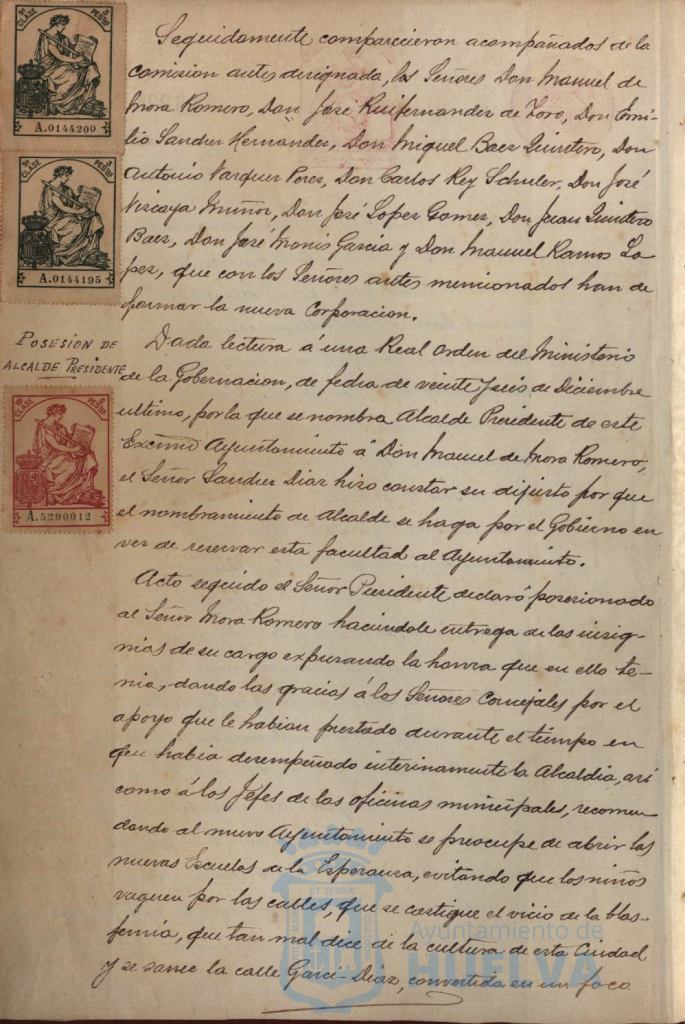 9ª CLASE 3 PESTAS
A.0144200
9ª CLASE 3 PESTAS
A.0144195
Seguidamente comparecieron acompañados de la
comision antes designada, los Señores Don Manuel de
Mora Romero, Don José Ruifernandez de Toro, Don Emi-
lio Sanchez Hernandez, Don Miguel Baez Quintero, Don
Antonio Vazquez Perez, Don Carlos Rey Schuler, Don José
Vizcaya Muñoz, Don José Lopez Gomez, Don Juan Quintero
Baez, Don José Monis Garcia y Don Manuel Ramos Lo
pez, que con los Señores antes mencionados han de
formar la nueva Corporacion.
POSESION DE
ALCALDE PRESIDENTE
CLASE PESTAS
A.5290012
Dada lectura á una Real orden del Ministerio
de la Gobernacion, de fecha de veinte y seis de Diciembre
ultimo, por la que se nombra Alcalde Presidente de este
Excmo Ayuntamiento á Don Manuel de Mora Romero,
el Señor Sanchez Diaz hizo constar su disgusto por que
el nombramiento de Alcalde se haga por el Gobierno en
vez de reservar esta facultad al Ayuntamiento.
Acto seguido el Señor Presidente declaró posesionado
al Señor Mora Romero haciendole entrega de las insig-
nias de su cargo expresando la honra que en ello te-
nia, dando las gracias á los Señores Concejales por el
apoyo que le habian prestado durante el tiempo en
que habia desempeñado interinamente la Alcaldia, asi
como á los Jefes de las oficinas municipales, recomen
dando al nuevo Ayuntamiento se preocupe de abrir las
nuevas Escuelas de la Esperanza, evitando que los niños
vaguen por las calles, que se castigue el vicio de la blas-
femia, que tan mal dice de la cultura de esta Ciudad
y se sanee la calle Garci-Diaz, convertida en un foco
Ayuntamiento de
HUELVA